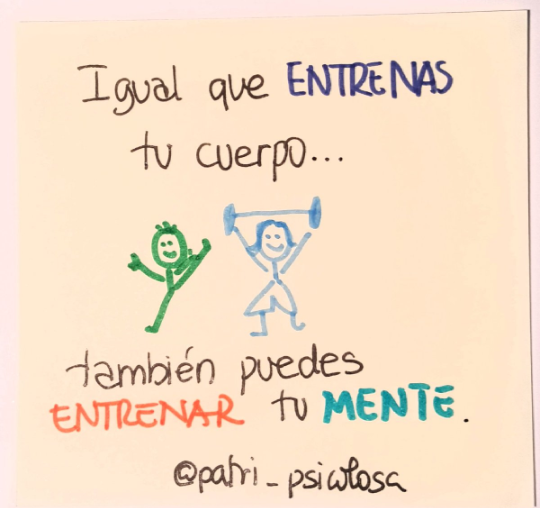 Igual que ENTRENAS
tu cuerpo...
también puedes
ENTRENAR tu MENTE.
@patri_psicolosa